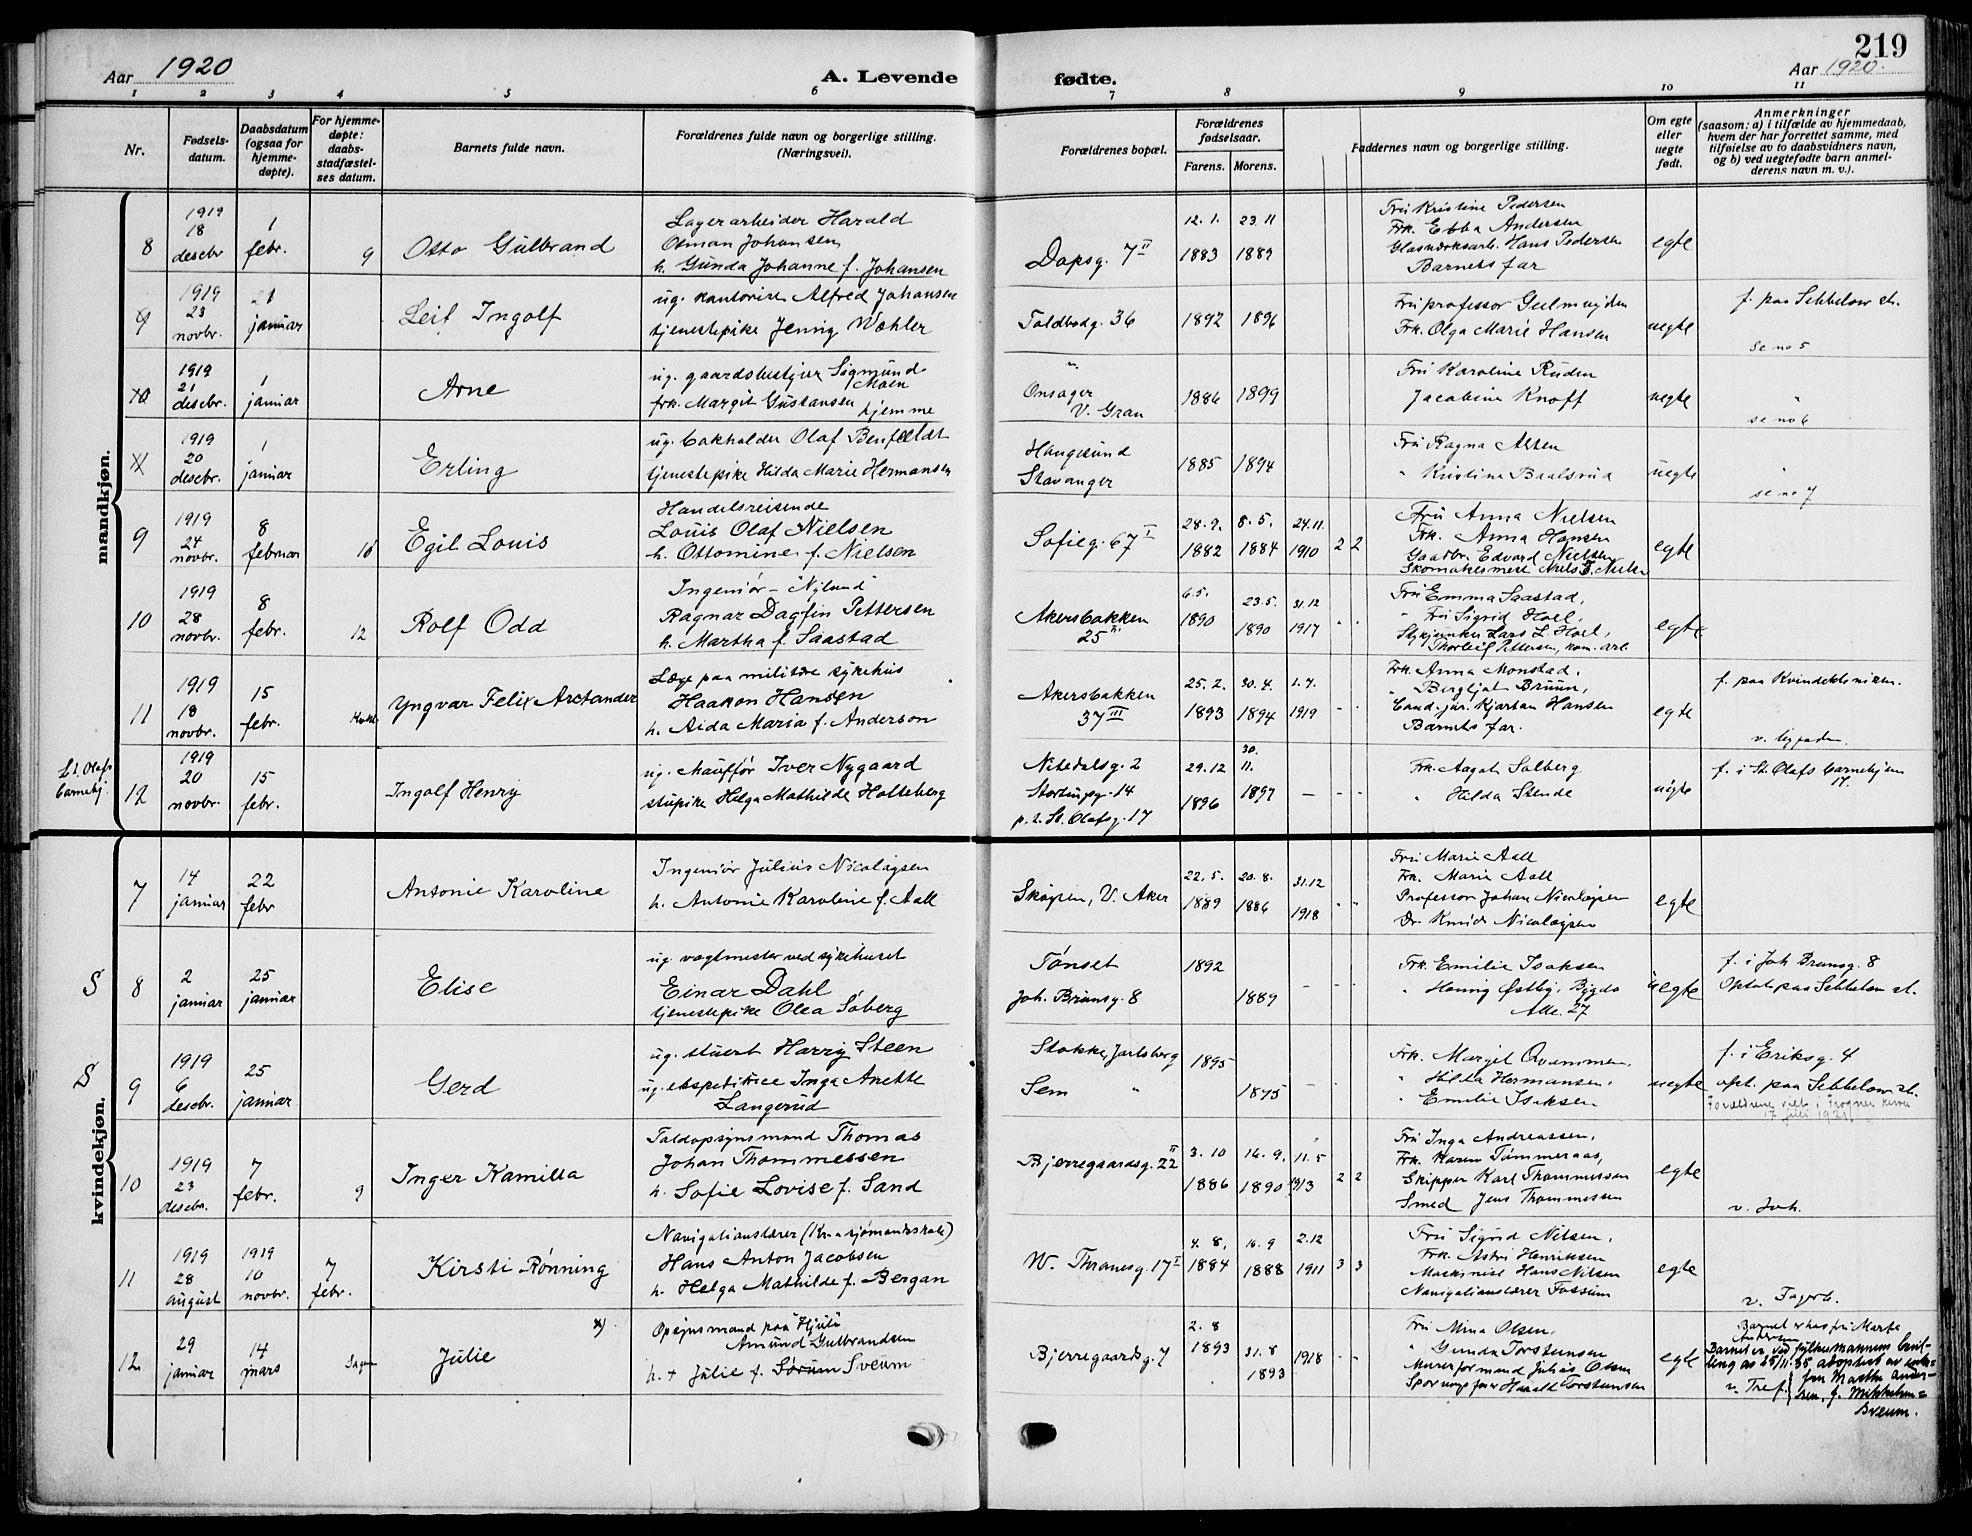 219
Aar 1920
A. Levende fødte.
Aar 1920.
1 2 3 4 5 6 7 8 9 10 11
Nr.
Fødsels-
datum.
Daabsdatum
(ogsaa for
hjemme-
døpte).
For hjemme-
døpte:
daabs-
stadfæstel-
ses datum.
Barnets fulde navn.
Forældrenes fulde navn og borgerlige stilling.
(Næringsvei).
Forældrenes bopæl.
Forældrenes
fødselsaar.
Farens. Morens.
Faddernes navn og borgerlige stilling.
Om egte
eller
uegte
født.
Anmerkninger
(saasom: a) i tilfælde av hjemmedaab,
hvem der har forrettet samme, med
tilføielse av to daabsvidners navn,
og b) ved uegtefødte barn anmel-
derens navn m. v.).
mandkjøn.
8
1919
18
desebr
1
febr.
9
Otto Gulbrand
Lagerarbeider Harald
Osman Johansen
h. Gunda Johanne f. Johansen
Dopsg. 7 II
12.1. 23.11
1883 1889
Fru Kristine Pedersen
Frk. Ebba Andersen
Glasværksarb. Hans Pedersen
Barnets far
egte
9
1919
23
novbr.
21
januar
Leif Ingolf
ug. kontorist Alfred Johansen
tjenestepike Jenny Wøhler
Toldbodg. 36
1892 1896
Fru professor
Frk. Olga Marie Hansen
uegte
f. paa Sebbelow st.
se no 5
10
1919
21
desebr.
1
januar
Arne
ug. gaardsbestyrer Sigmund
Moen
frk. Margit Gustansen hjemme
"
Onsager
V. Gran
1886 1899
Fru Karoline Ruden
Jacobine Knoff
uegte
"
se no 6
11
1919
20
desebr.
1
januar
Erling
ug. bokholder Olaf Benfeldt
tjenestepike Hilda Marie Hermansen
Haugesund
Stavanger
1885 1894
Fru Ragna Alsen
" Kristine Baalsrud
uegte
"
se no 7
9
1919
24
novbr.
8
februar
10
Egil Louis
Handelsreisende
Louis Olaf Nielsen
h. Ottomine f. Nielsen
Sofieg. 67 I
28.9. 8.5. 24.11.
1882 1884 1910 2 2
Fru Anna Nielsen
Frk. Anna Hansen
Gaardbr. Edvard Nielsen
egte
10
1919
28
novbr.
8
febr.
12
Rolf Odd
Ingeniør - "Nylund"
Ragnar Dagfin Pettersen
h. Martha f. Saastad
Akersbakken
25 II
6.5. 23.5. 31.12
1890 1890 1917 " "
Fru Emma Saastad,
" Fru Sigrid Hoel,
Stykjunker Lars L. Hoel,
Thorleif Pettersen, kom. arb.
egte
11
1919
18
novbr.
15
febr.
Yngvar Felix Arctander
Læge paa militære sykehus
Haakon Hansen
h. Aida Maria f. Anderson
Akersbakken
37 III
25.2. 30.4. 1.7.
1893 1894 1919 - -
Frk. Anna Monstad,
" Bergljot Bruun,
Cand. jur. Kjartan Hansen
Barnets far.
egte
f. paa Kvindeklinikken.
St. Olafs
barnehj.
12
1919
20
novbr.
15
febr.
Ingolf Henry
ug. chauffør Iver Nygaard
stupike Helga Mathilde Holteberg
Nitedalsg. 2
Stortingsg. 14
p.t. St. Olafsg. 17
29.12 30.11.
1896 1897 - - -
Frk. Aagot Solberg
" Hilda Stende
uegte
f. i St. Olafs barnehjem
17.
kvindekjøn.
7
14
januar
22
febr
Antonie Karoline
Ingeniør Julius Nicolaysen
h. Antonie Karoline f. Aall
Skøyen, V. Aker
22.5. 20.8. 31.12
1889 1886 1918 " "
Fru Marie Aall
Frk. Marie Aall
Professor Johan Nicolaysen
Dr. Knud Nicolaysen
egte
S
8
2
januar
25
januar
Elise
ug. vagtmester ved sykehuset
Einar Dahl
tjenestepike Olea Søberg
Tønset
Joh. Brunsg. 8
1892
1889
- - -
Frk. Emilie Isaksen
" Henny Østby, Bygdø
Alle. 27
uegte
f. i Joh Brunsg. 8
Optat paa Sebbelow st.
S
9
1919
6
desebr.
25
januar
Gerd
ug. stuert Harry Steen
ug. ekspeditrice Inga Anette
Langerud
Stokke, Jarlsberg
Sem "
1895
1895
- - -
Frk. Margit Qvammen,
" Hilda Hermansen,
" Emilie Isaksen
uegte
f. i Eriksg. 4
opt. paa Sebbelow st.
Forældrene viet i Frogner kirke
17 juli 1921
10
1919
23
desebr.
7
febr.
9
Inger Kamilla
Toldopsynsmand Thomas
Johan Thommessen
h. Sofie Lovise f. Sand
Bjerregaardsg. 22 II
3.10 16.9. 11.5
1886 1890 1913 2 2
Fru Inga Andreassen,
Frk. Karen Tømmeraas,
Skipper Karl Thommessen
Smed Jens Thommessen
egte
v. Joh.
11
1919
28
august
1919
10
novbr.
7
febr.
Kirsti Rønning
Navigationslærer (Kr.a sjømandsskole)
Hans Anton Jacobsen
h. Helga Mathilde f. Bergan
W. Thranesg. 17 I
4.8. 16.9 2.12
1884 1888 1911 3 3
Fru Sigrid Nilsen,
Frk. Astri Henriksen
Maskinist Hans Nilsen
Navigationslærer Fossum
egte
v. Fagerb.
12
29
januar
14
mars
Sagene
Julie
x)
Opsynsmand paa Hjula
Amund Gulbrandsen
h. + Julie f. Sørum Sveum
Bjerregaardsg. 7
2.8
1893 31.8
1893 1918 - -
Fru Mina Olsen,
" Gunda Torstensen
Murerformand Julius Olsen
Sporvognsfører Harald Torstensen
egte
Barnet er hos fru Marta
Andersen
Barnet er ved fylkesmannens bevil-
ling av 25/11.35 adoptert av enke-
fru Marthe Ander-
sen, f. Mikkelsen
Sveum.
v. Tref.